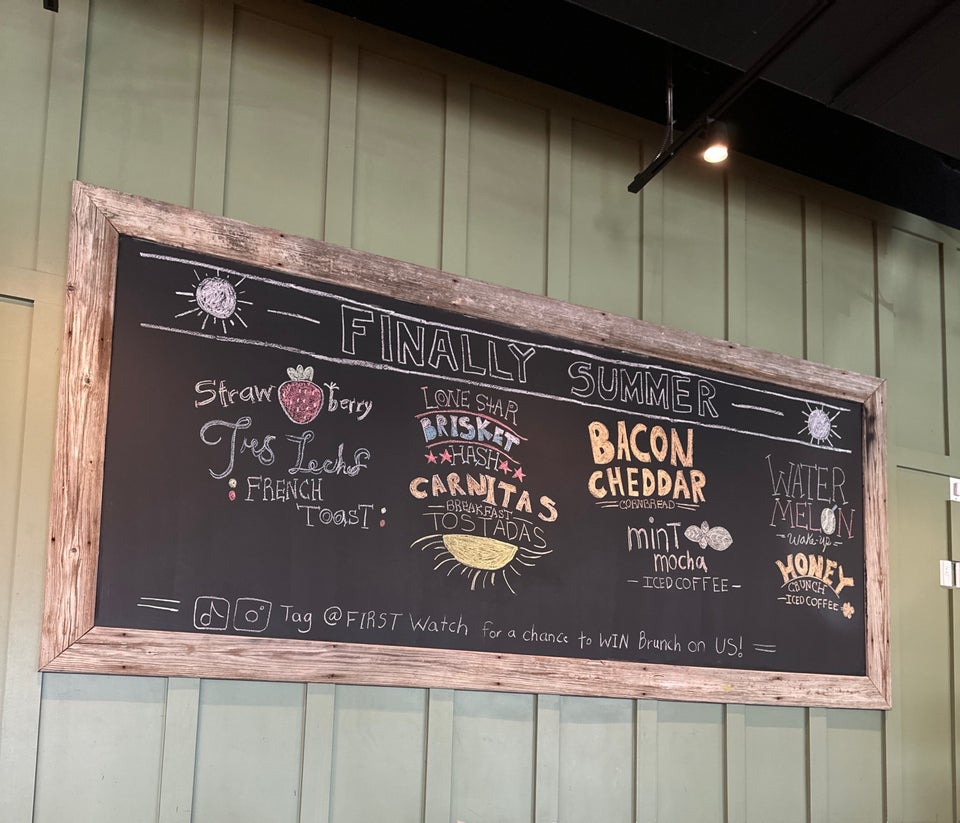 FINALLY SUMMER
Straw berry
Tres Leches
FRENCH
TOAST
LONE STAR
BRISKET
HASH
CARNITAS
BREAKFAST
TOSTADAS
BACON
CHEDDAR
CORNBREAD
minT
mocha
ICED COFFEE
WATER
MELON
Wake-up
HONEY
CRUNCH
ICED COFFEE
Tag @FIRST Watch for a chance to WIN Brunch on US!